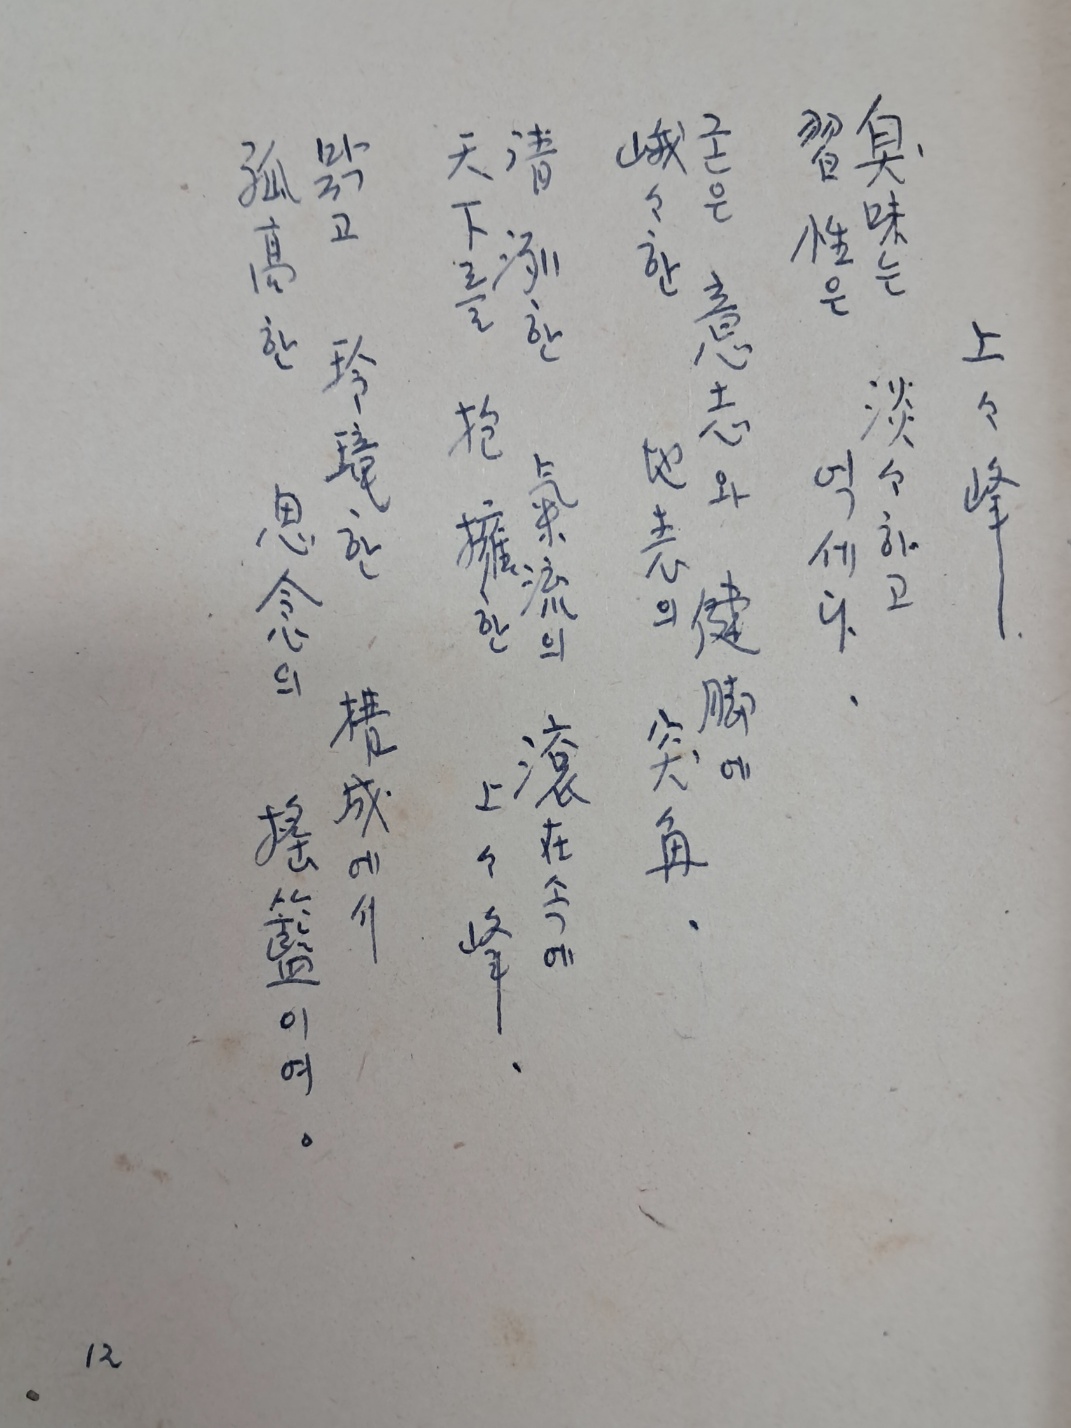 上々峰
臭味는 淡々하고
習性은 억세다.
굳은 意志와 健脚에
峨々한 地表의 突角.
淸冽한 氣流의 滾在속에
天下를 抱擁한 上々峰.
맑고 玲 한 構成에서
孤高한 思念의 搖籃이여.
12